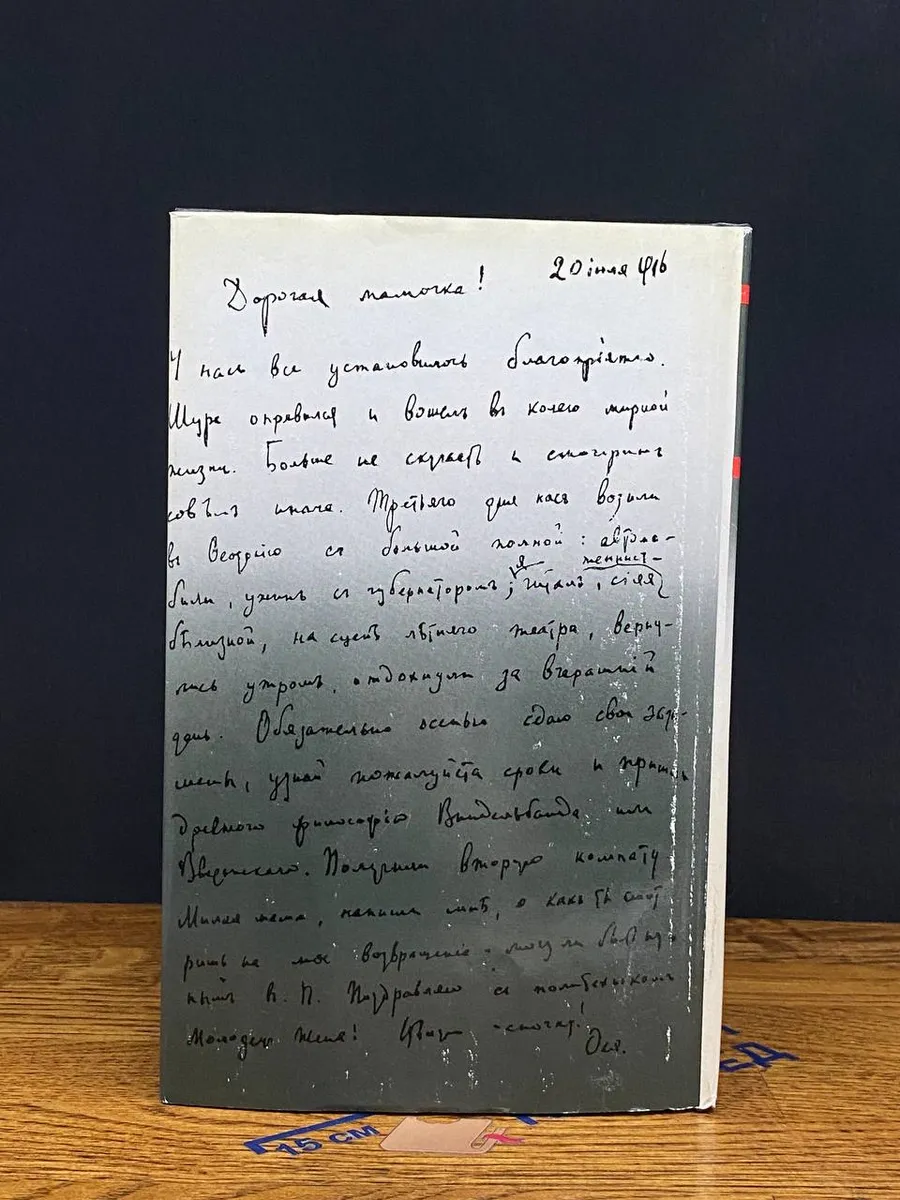 20 іюля 1916
Дорогая мамочка!
У насъ все установилось благопріятно.
Шура оправился и вошелъ въ колею мирной
жизни. Больше не скучаетъ и смотритъ
совѣмъ иначе. Третьяго дня насъ возили
въ Ѳеодосію съ большой помпой: автомо-
били, ужинъ съ губернаторомъ; я читалъ, сіяя теннист-
бѣлизной, на сценѣ лѣтняго театра, верну-
лись утромъ, отдохнули за вчерашній
день. Обязательно осенью сдаю свои экза-
мены, узнай пожалуйста сроки и пришли
древнюю философію Виндельбанда или
Введенскаго. Получили вторую комнату
Милая мама, напиши мнѣ, о какъ ты смот-
ришь на мое возвращеніе и могу ли быть
В. П. Поздравляю съ политехникомъ
Молодецъ Женя! Цѣлую мамочку!
Ося.
15 СМ